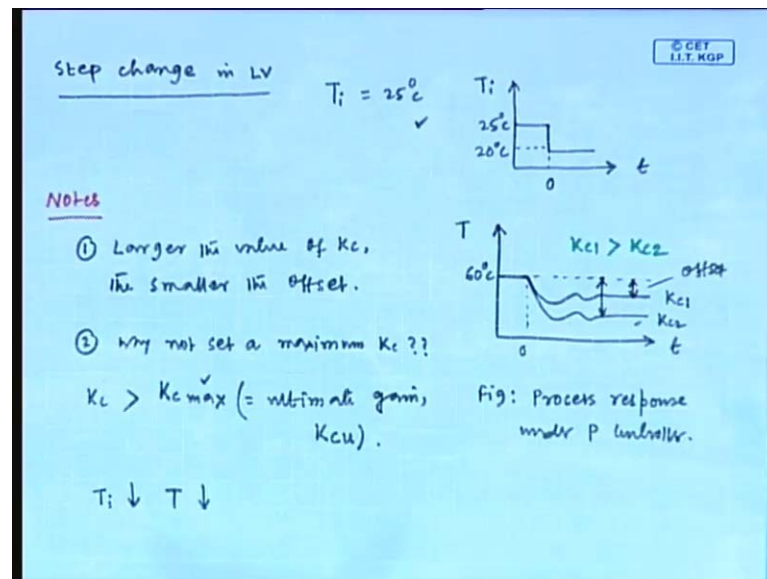 © CET
I.I.T. KGP
Step change in LV
Ti = 25°c
✓
Ti
25°c
20°c
t
0
Notes
① Larger the value of Kc,
the smaller the offset.
② Why not set a maximum Kc ??
Kc > Kc max (= ultimate gain,
Kcu).
Ti ↓ T ↓
T
60°c
Kc1 > Kc2
offset
Kc1
Kc2
t
0
Fig: Process response
under P controller.